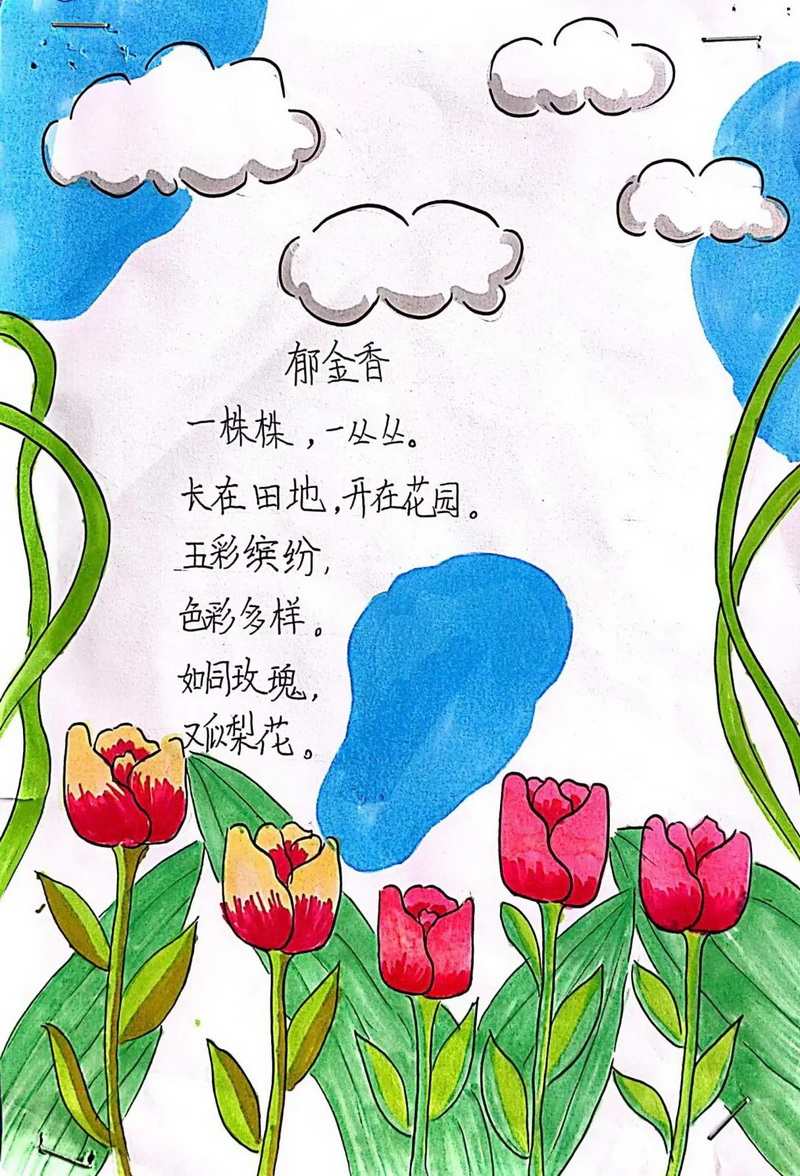 郁金香
一株株，一丛丛。
长在田地，开在花园。
五彩缤纷，
色彩多样。
如同玫瑰，
又似梨花。